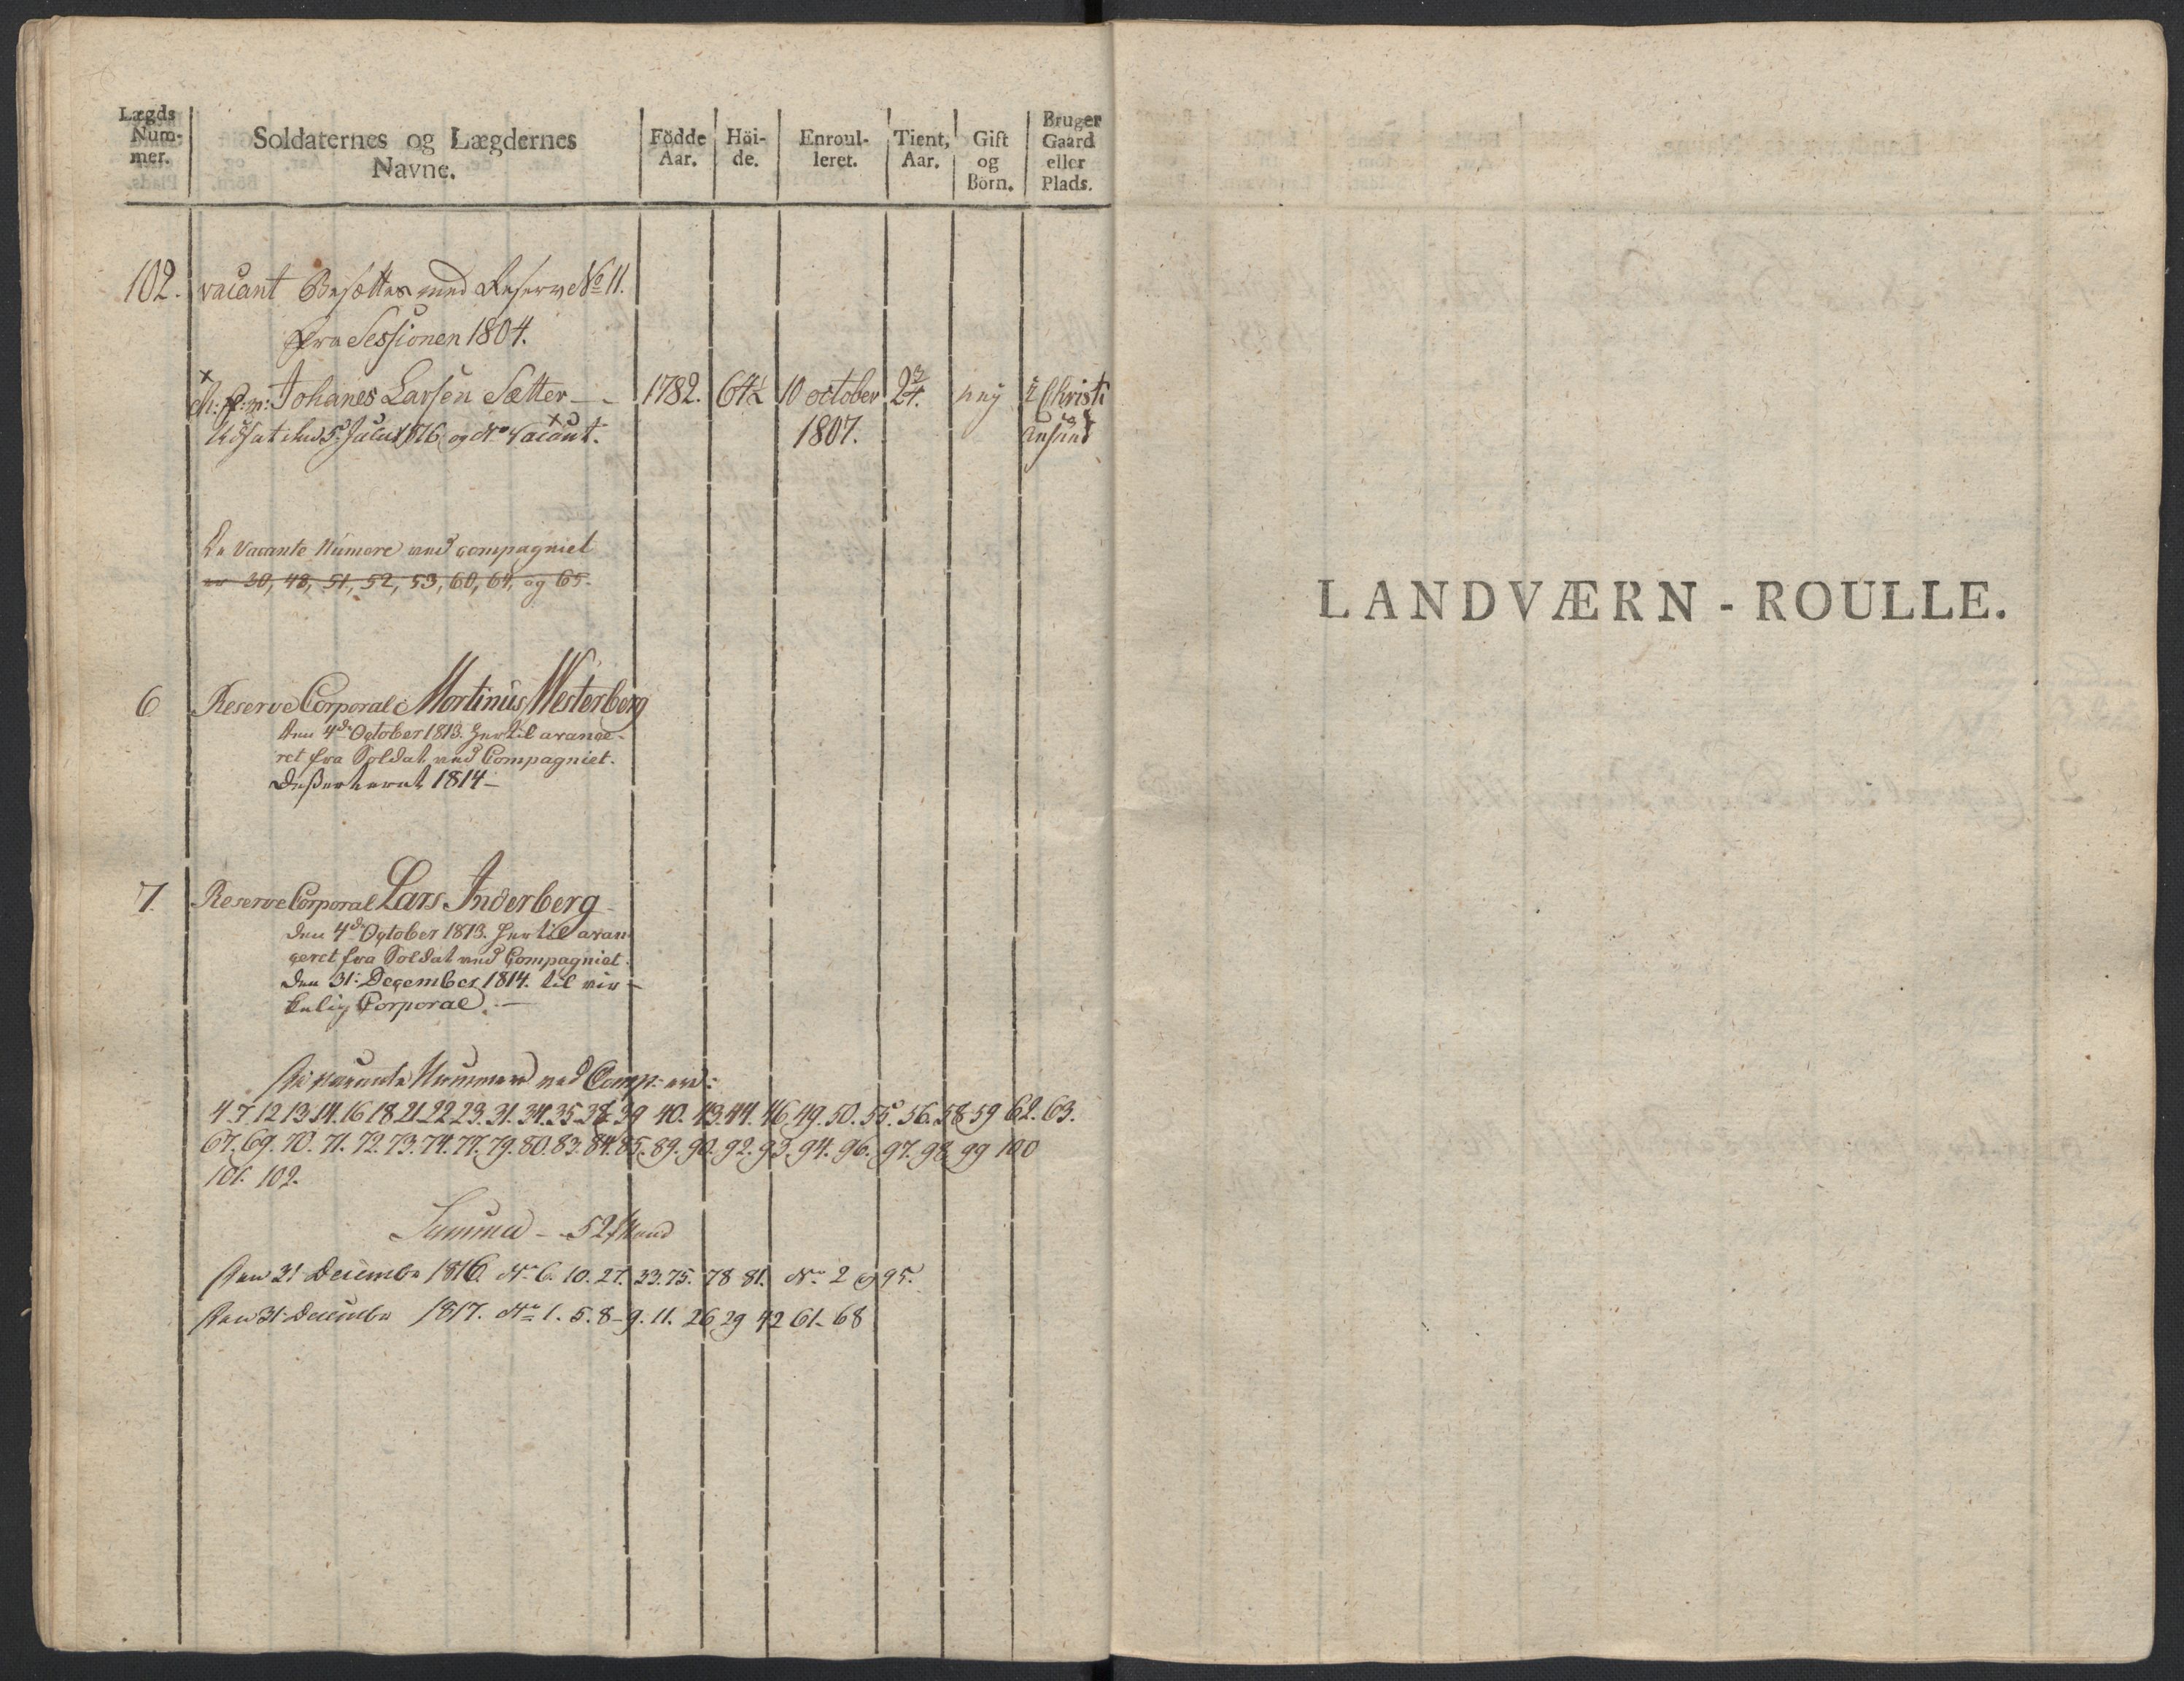 Lægds Num-mer.
Soldaternes og Lægdernes Navne.
Födde Aar.
Höi-de.
Enroul-leret.
Tient, Aar.
Gift og Börn.
Bruger Gaard eller Plads.
102. vacant Besættes med Reserve No 11.
fra Sessionen 1804.
Johanes Larsen Sætter 1782. 64½ 10 october 2¾ nej i Christi
1816 og No vacant. 1807. ansand
De Vacante Numere ved compagniet
er 30, 48, 51, 52, 53, 60, 64, og 65.
6 Reserve Corporal Mortinus Westerberg
den 4de October 1813. hertil arange-
ret fra Soldat ved Compagniet.
Deßerteret 1814
7. Reserve Corporal Lars Inderberg
den 4de October 1813. hertil aran
geret fra Soldat ved Compagniet.
den 31: December 1814. til vir-
kelig Corporal.
De vacante Nummere ved Comp: er:
4. 7. 12 13. 14. 16 18. 21. 22. 23. 31. 34. 35. 38. 39 40. 43. 44. 46. 49. 50. 55. 56. 58 59 62. 63.
67. 69. 70. 71. 72. 73. 74. 77. 79. 80. 83. 84. 85. 89. 90. 92. 93. 94. 96. 97. 98. 99 100
101. 102.
Summa - 52 Mand
Den 31 Decembr 1816. No 6. 10. 27. 33. 75. 78 81. No 2 og 95.
Den 31 Decembr 1817. No 1. 5. 8 - 9. 11. 26 29 42 61. 68
LANDVÆRN - ROULLE.